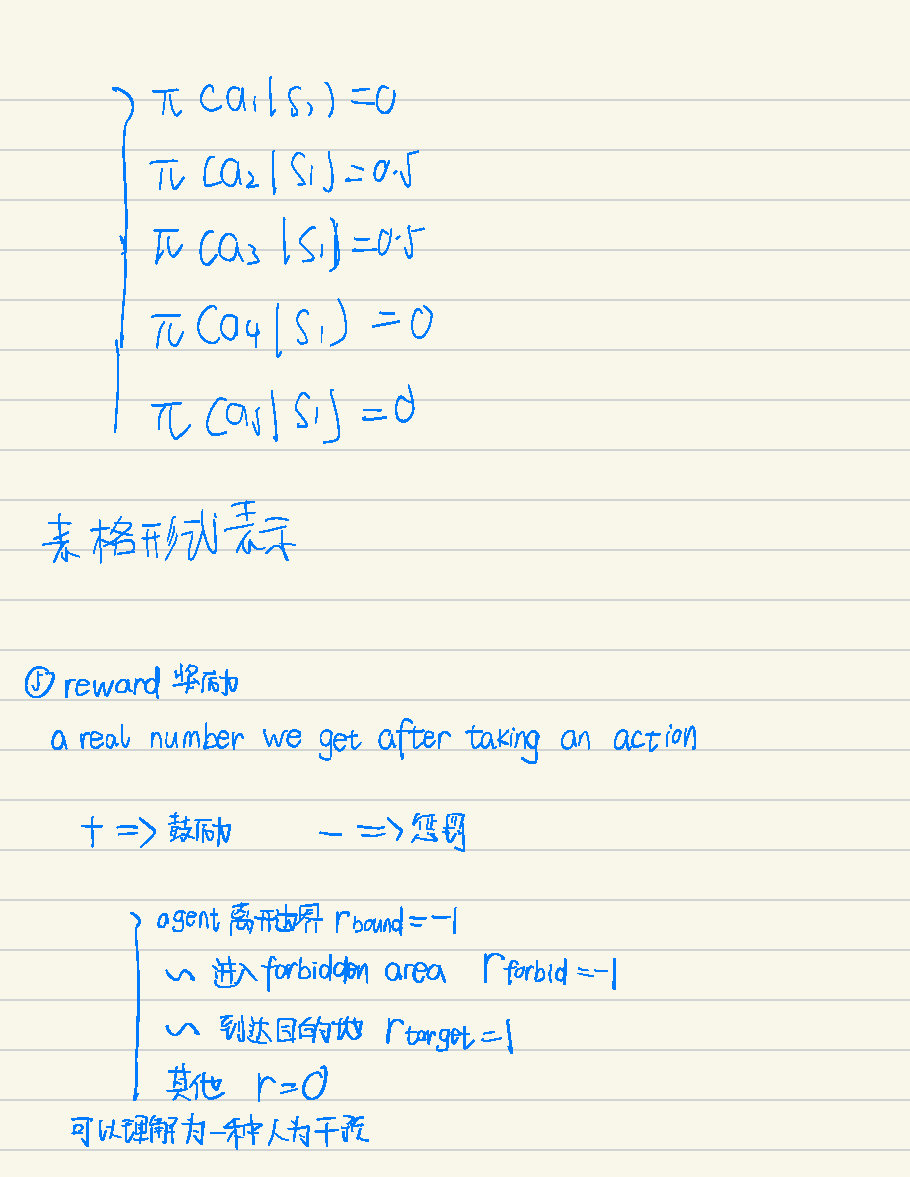 π(a₁|s₁)=0
π(a₂|s₁)=0.5
π(a₃|s₁)=0.5
π(a₄|s₁)=0
π(a₅|s₁)=0
表格形式表示
⑤ reward 奖励
a real number we get after taking an action
+ => 鼓励 - => 惩罚
agent 离开边界 r bound=-1
~ 进入forbidden area r forbid=-1
~ 到达目的地 r target=1
其他 r=0
可以理解为一种人为干预